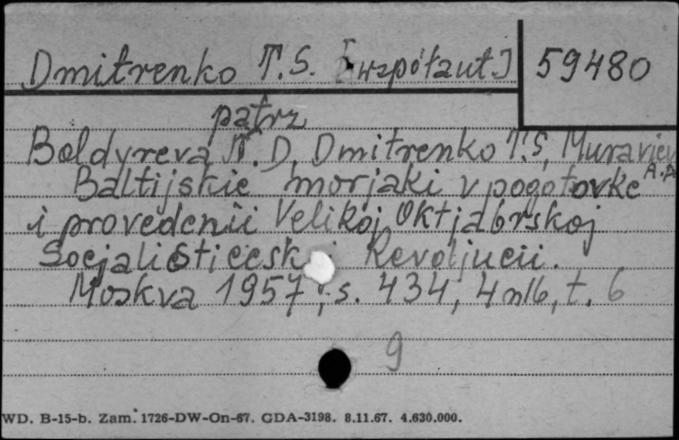 Dmitrenko T. S. [współaut.] 59480
patrz
Boldyreva D. Dmitrenko T. S, Muraviev A. A
Baltijskie morjaki v pogotovke
i provedenii Velikoj Oktjabrskoj
Socjalisticesk j Revoljucii.
Moskva 1957, s. 434, 4 nlb, t. 6
9
WD. B-15-b. Zam. 1726-DW-On-67. GDA-3198. 8.11.67. 4.630.000.